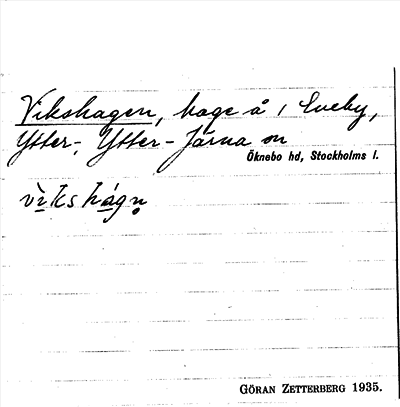 Vikshagen, hage å 1 Eneby,
Ytter-, Ytter-Järna sn
Öknebo hd, Stockholms l.
vìkshágn̥
GÖRAN ZETTERBERG 1935.